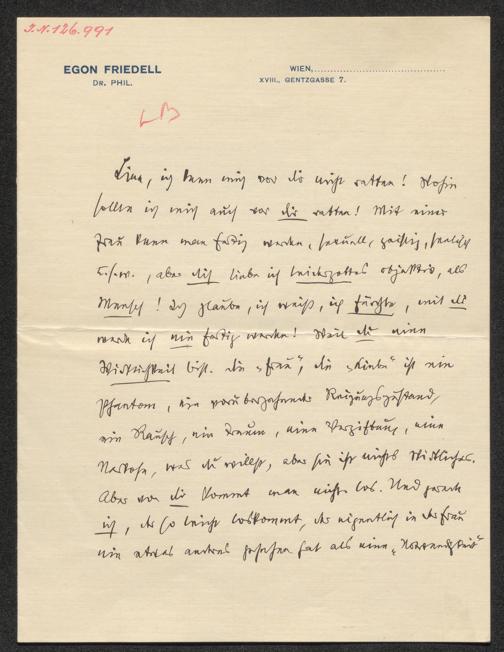 J.N. 126.991
EGON FRIEDELL
DR. PHIL.
WIEN,
XVIII., GENTZGASSE 7.
LB
Lina, ich kann mich vor dir nicht retten! Wohin
sollte ich mich auch vor dir retten! Mit einer
Frau kann man fertig werden, sexuell, geistig, seelisch
u.s.w., aber dich liebe ich leidergottes objektiv, als
Mensch! Ich glaube, ich weiß, ich fürchte, mit dir
werde ich nie fertig werden! Weil du eine
Wirklichkeit bist. Die „Frau", die „Liebe" ist ein
Phantom, ein vorübergehender Reizungszustand,
ein Rausch, ein Traum, eine Vergiftung, eine
Narkose, was du willst, aber sie ist nichts Wirkliches.
Aber von dir kommt man nicht los. Und gerade
ich, der so leicht loskommt, der eigentlich in der Frau
nie etwas anderes gesehen hat als eine „Notwendigkeit"